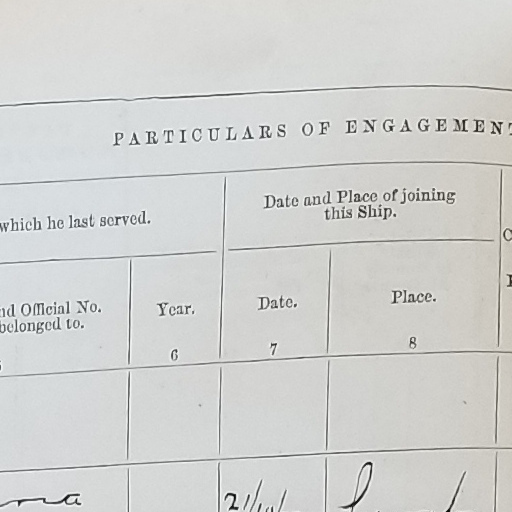 PARTICULARS OF ENGAGEMENT
which he last served.
Date and Place of joining
this Ship.
Official No.
belonged to.
Year.
Date.
Place.
6
7
8